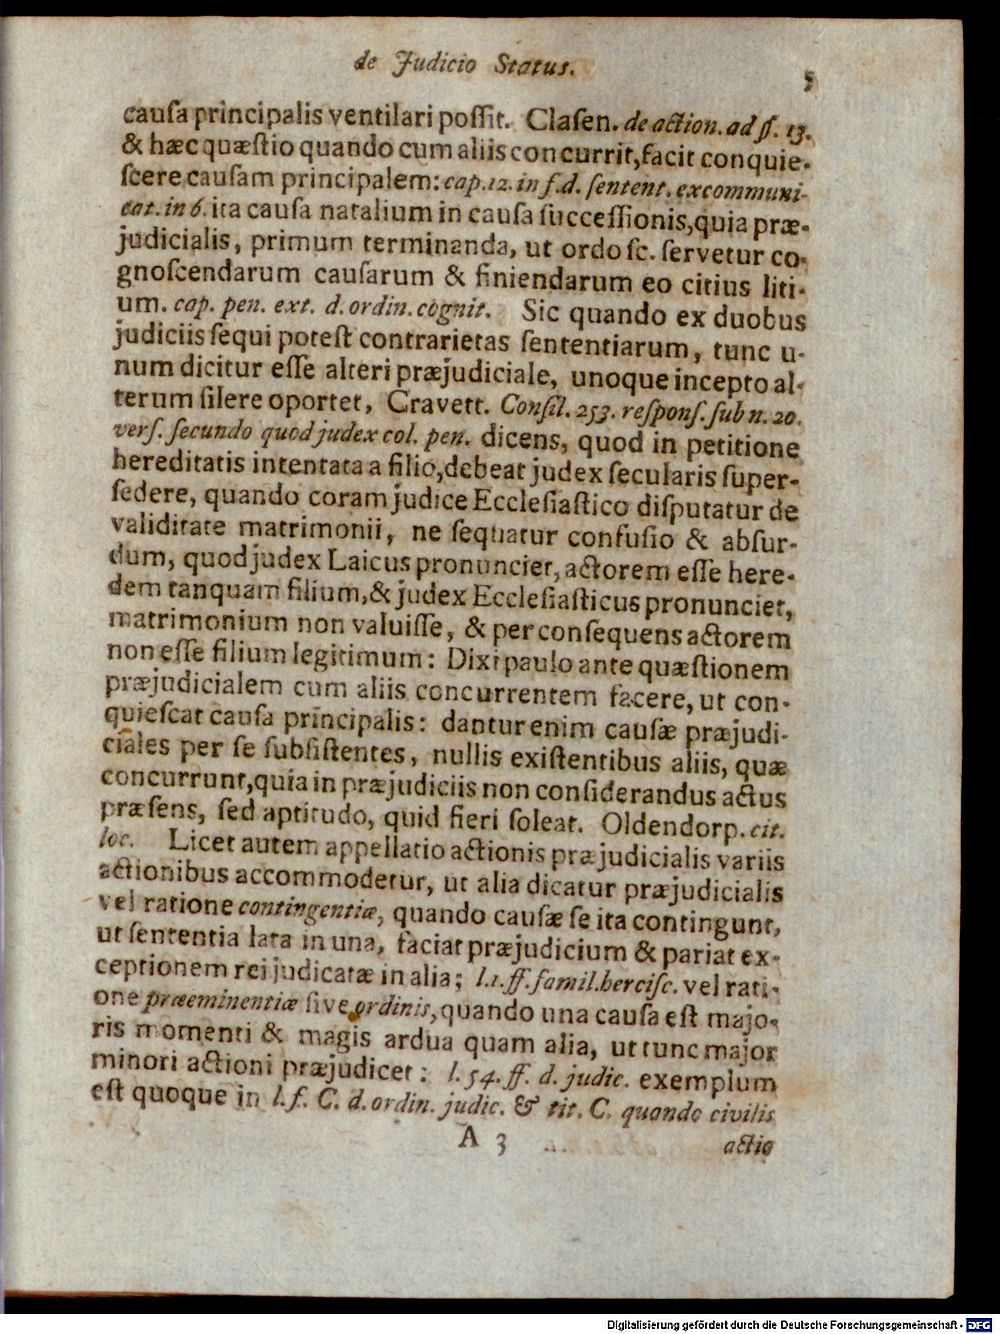 de Judicio Status.
5
cauſa principalis ventilari poſſit. Claſen. de action. ad ſ. 13.
& hæc quæſtio quando cum aliis concurrit, facit conquie-
ſcere cauſam principalem: cap. 12. in f. d. ſentent. excommuni-
cat. in 6. ita cauſa natalium in cauſa ſucceſſionis, quia præ-
judicialis, primum terminanda, ut ordo ſc. ſervetur co-
gnoſcendarum cauſarum & finiendarum eo citius liti-
um. cap. pen. ext. d. ordin. cognit. Sic quando ex duobus
judiciis ſequi poteſt contrarietas ſententiarum, tunc u-
num dicitur eſſe alteri præjudiciale, unoque incepto al-
terum ſilere oportet, Cravett. Conſil. 253. reſponſ. ſub n. 20.
verſ. ſecundo quod judex col. pen. dicens, quod in petitione
hereditatis intentata a filio, debeat judex ſecularis ſuper-
ſedere, quando coram judice Eccleſiaſtico diſputatur de
validitate matrimonii, ne ſequatur confuſio & abſur-
dum, quod judex Laicus pronunciet, actorem eſſe here-
dem tanquam filium, & judex Eccleſiaſticus pronunciet,
matrimonium non valuiſſe, & per conſequens actorem
non eſſe filium legitimum: Dixi paulo ante quæſtionem
præjudicialem cum aliis concurrentem facere, ut con-
quieſcat cauſa principalis: dantur enim cauſæ præjudi-
ciales per ſe ſubſiſtentes, nullis exiſtentibus aliis, quæ
concurrunt, quia in præjudiciis non conſiderandus actus
præſens, ſed aptitudo, quid fieri ſoleat. Oldendorp. cit.
loc. Licet autem appellatio actionis præjudicialis variis
actionibus accommodetur, ut alia dicatur præjudicialis
vel ratione contingentiæ, quando cauſæ ſe ita contingunt,
ut ſententia lata in una, faciat præjudicium & pariat ex-
ceptionem rei judicatæ in alia; l. 1. ff. famil. herciſc. vel rati-
one præeminentiæ ſive ordinis, quando una cauſa eſt majo-
ris momenti & magis ardua quam alia, ut tunc major
minori actioni præjudicet: l. 54. ff. d. judic. exemplum
eſt quoque in l. f. C. d. ordin. judic. & tit. C. quando civilis
A 3
actio
Digitalisierung gefördert durch die Deutsche Forschungsgemeinschaft - DFG